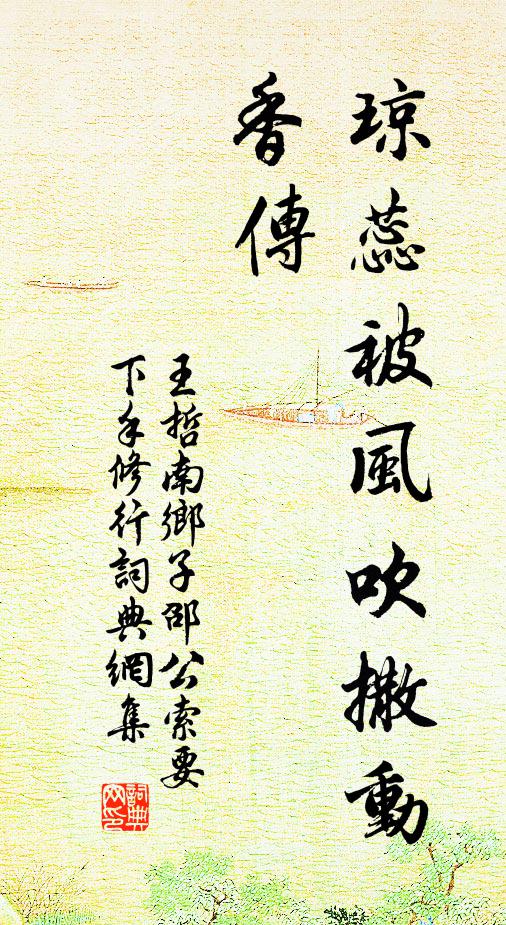 琼蕊被風吹撒動
香傳
王哲南鄉子邵公索要
下手修行詞典網集
詞典
网印